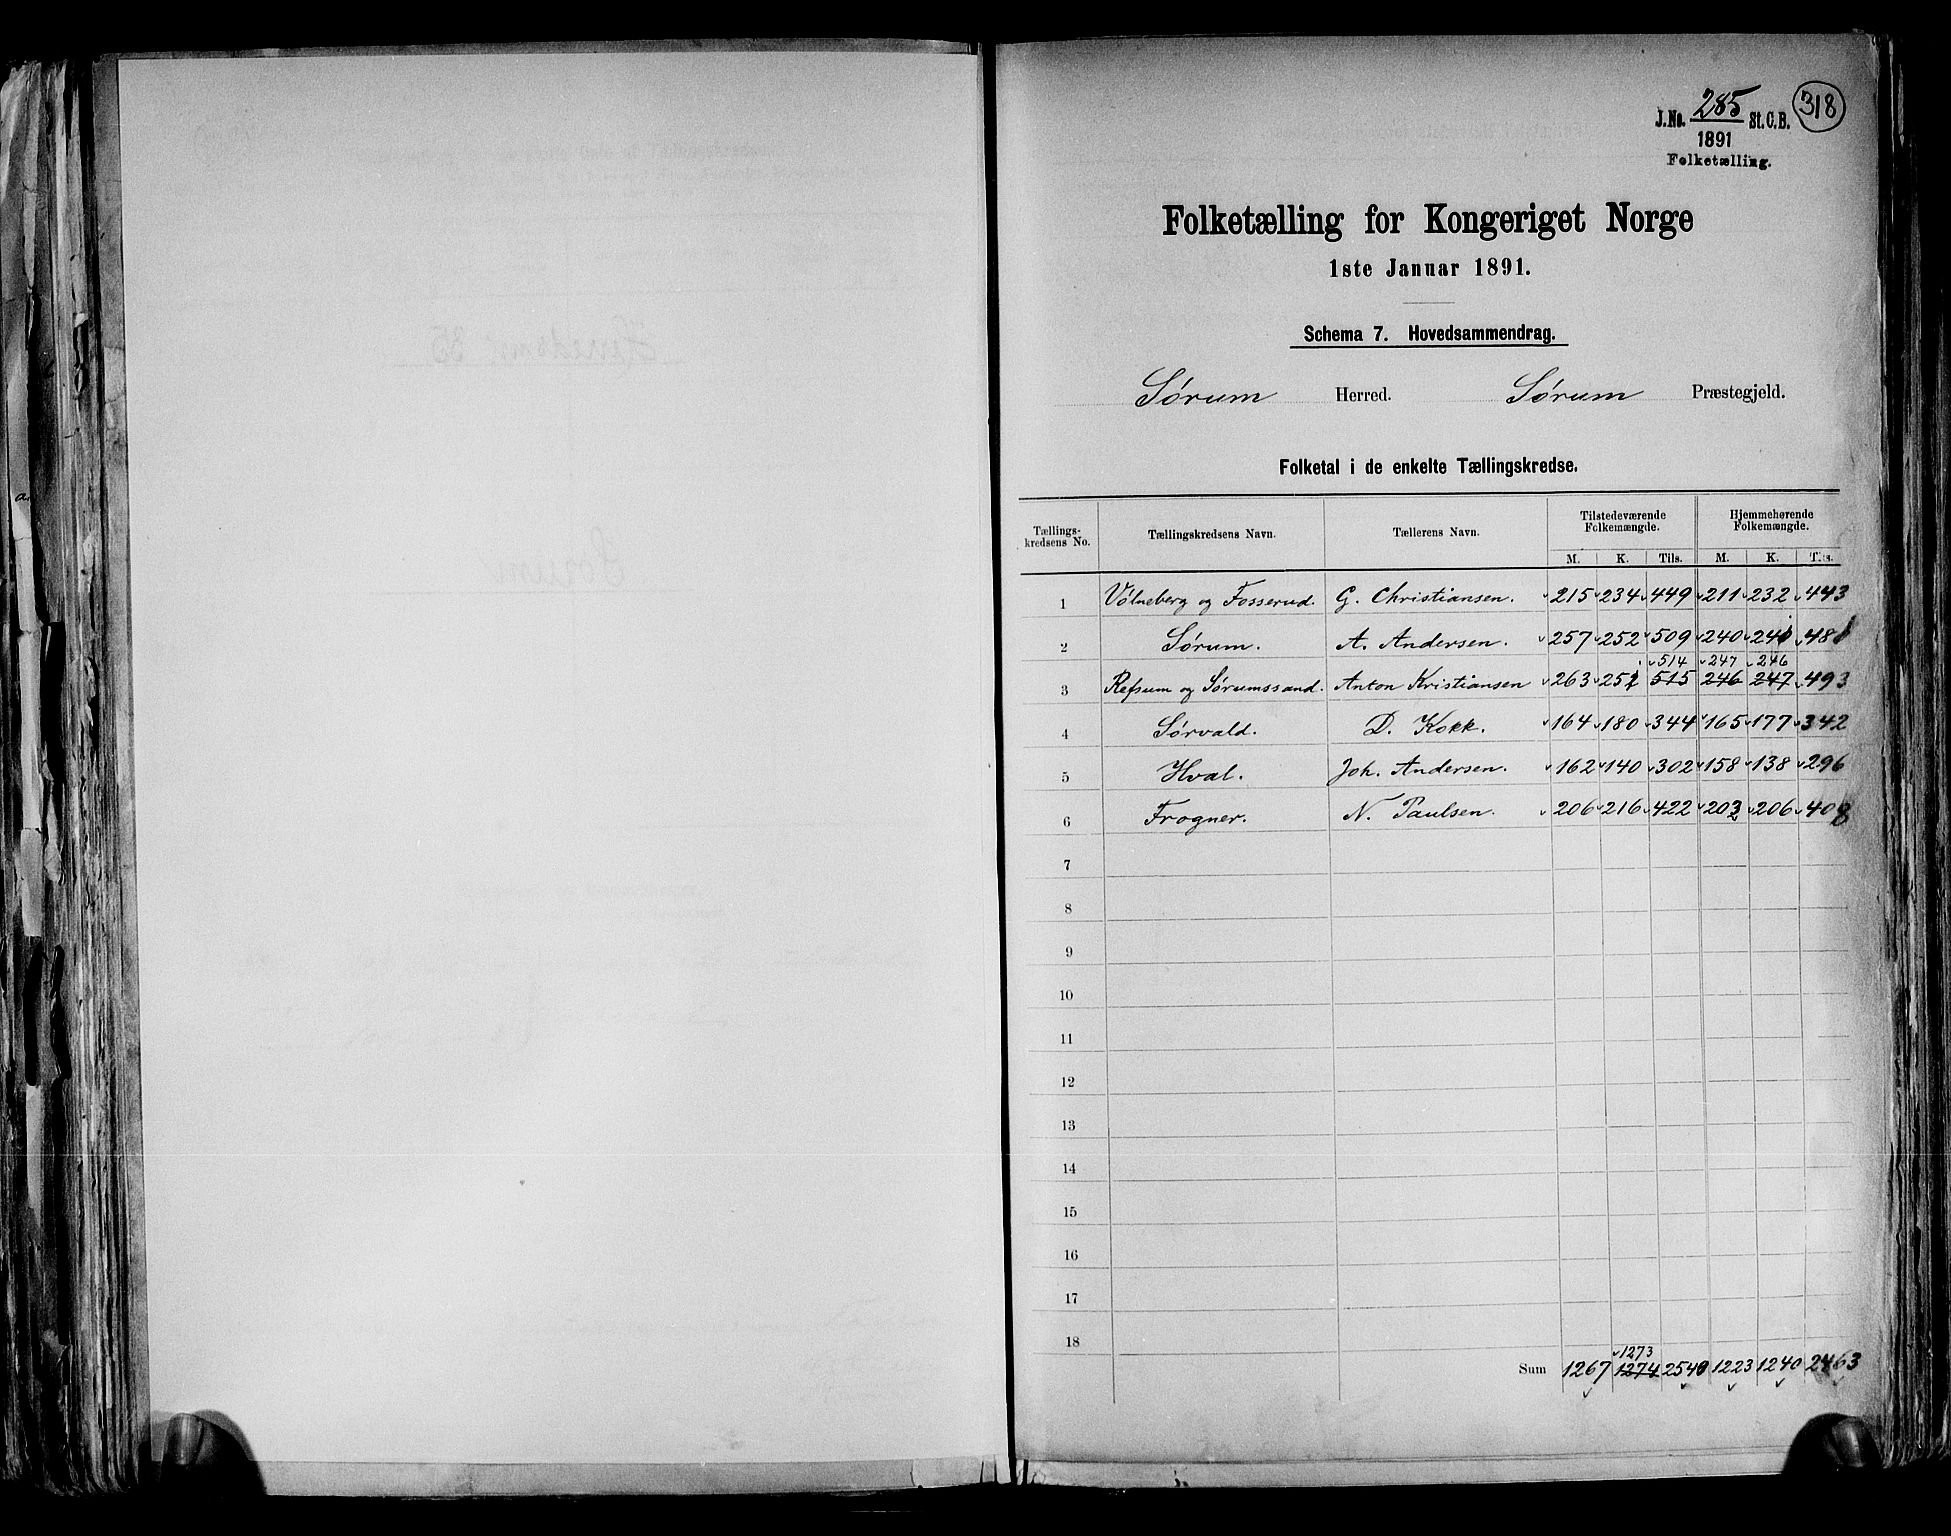 J.No. 285 St.C.B. 318
1891
Folketælling.
Folketælling for Kongeriget Norge
1ste Januar 1891.
Schema 7. Hovedsammendrag.
Sørum Herred. Sørum Præstegjeld.
Folketal i de enkelte Tællingskredse.
Tællings-kredsens No. Tællingskredsens Navn. Tællerens Navn. Tilstedeværende Folkemængde. Hjemmehørende Folkemængde.
M. K. Tils. M. K. Tils.
1 Vølneberg og Fosserud. G. Christiansen. 215 234 449 211 232 443
2 Sørum. A. Andersen. 257 252 509 240 241 481
514 247 246
3 Refsum og Sørumssand. Anton Kristiansen 263 251 515 246 247 493
4 Sørvald. D. Kokk. 164 180 344 165 177 342
5 Hval. Joh. Andersen. 162 140 302 158 138 296
6 Frogner. N. Paulsen. 206 216 422 202 206 408
7
8
9
10
11
12
13
14
15
16
17
18
1273
Sum 1267 1274 2540 1223 1240 2463